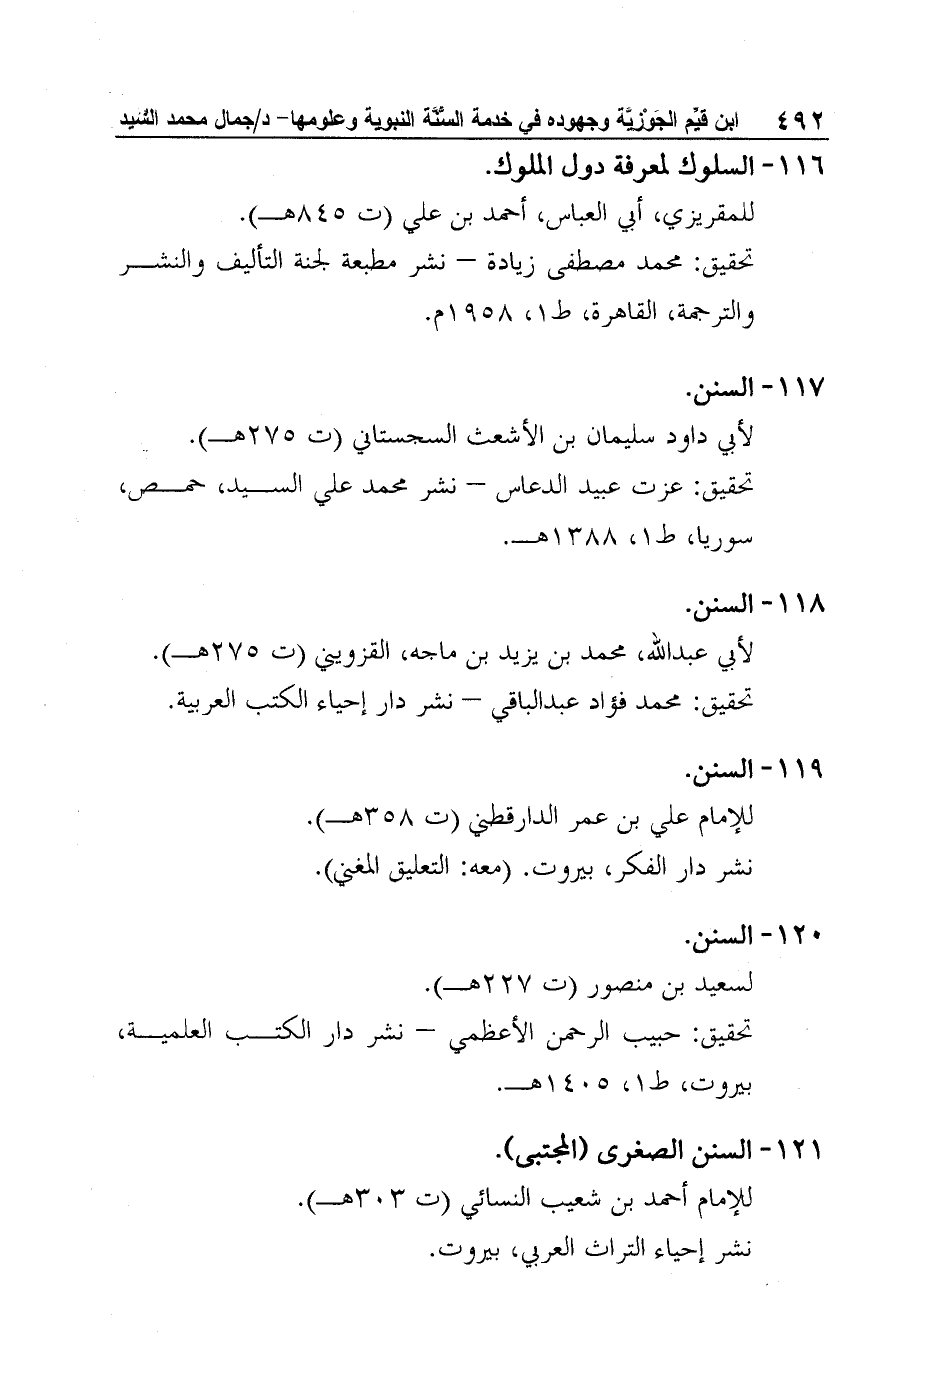 ٤٩٢ ابن قيِّم الجَوْزيَّة وجهوده في خدمة السُّنَّة النبوية وعلومها- د/جمال محمد السَّيد
١١٦- السلوك لمعرفة دول الملوك.
للمقريزي، أبي العباس، أحمد بن علي (ت ٨٤٥هـ).
تحقيق: محمد مصطفى زيادة – نشر مطبعة لجنة التأليف والنشر
والترجمة، القاهرة، ط١، ١٩٥٨م.
١١٧- السنن.
لأبي داود سليمان بن الأشعث السجستاني (ت ٢٧٥هـ).
تحقيق: عزت عبيد الدعاس – نشر محمد علي السيد، حمص،
سوريا، ط١، ١٣٨٨هـ.
١١٨- السنن.
لأبي عبدالله، محمد بن يزيد بن ماجه، القزويني (ت ٢٧٥هـ).
تحقيق: محمد فؤاد عبدالباقي – نشر دار إحياء الكتب العربية.
١١٩- السنن.
للإمام علي بن عمر الدارقطني (ت ٣٥٨هـ).
نشر دار الفكر، بيروت. (معه: التعليق المغني).
١٢٠- السنن.
لسعيد بن منصور (ت ٢٢٧هـ).
تحقيق: حبيب الرحمن الأعظمي – نشر دار الكتب العلمية،
بيروت، ط١، ١٤٠٥هـ.
١٢١- السنن الصغرى (المجتبى).
للإمام أحمد بن شعيب النسائي (ت ٣٠٣هـ).
نشر إحياء التراث العربي، بيروت.